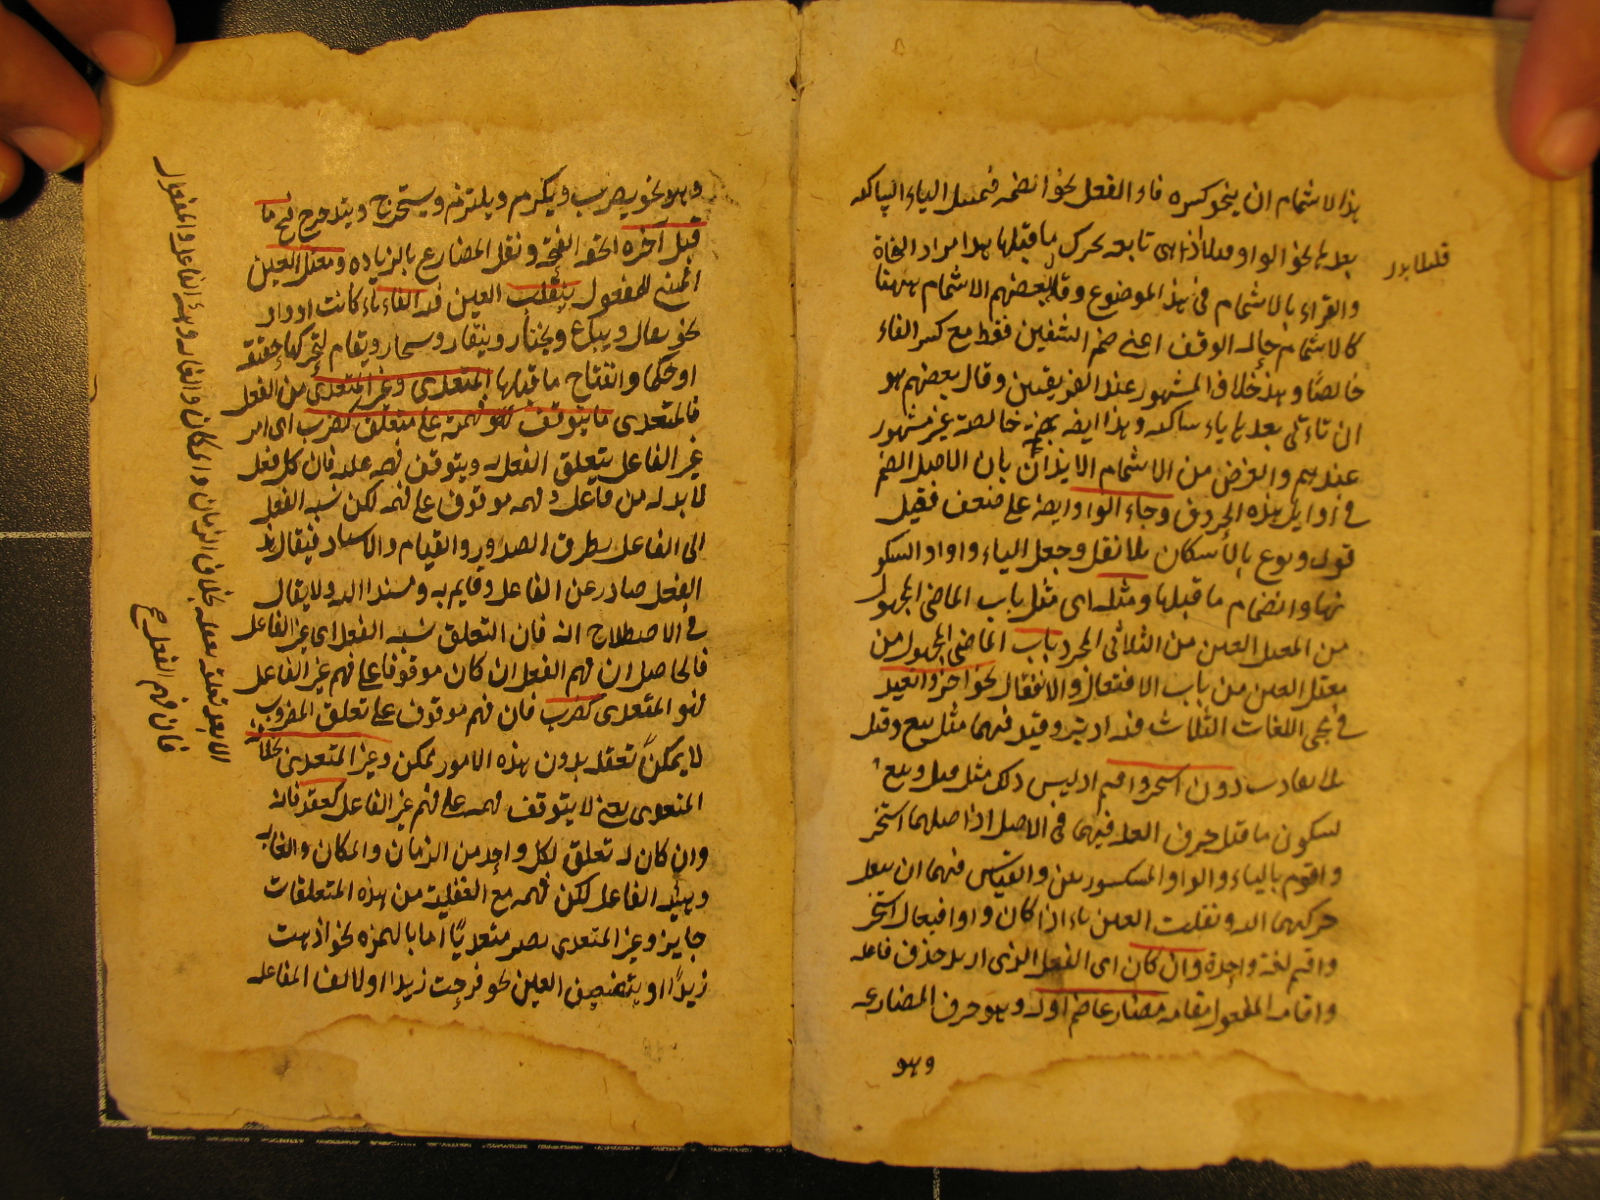 هذا الاشمام ان ينحو كسره فاء الفعل نحو الضمه فتميل الياء الساكنه
بعدها نحو الواو قليلا اذ هى تابعه لحركة ما قبلها هذا مراد النحاة
والقراء بالاشمام فى هذا الموضوع وقال بعضهم الاشمام ههنا
كالاشمام حاله الوقف اعنى ضم الشفتين فقط مع كسر الفاء
خالصًا وهذا خلاف المشهور عند الفريقين وقال بعضهم هو
ان تاتى بعدها ياء ساكنه وهذا ايضه خالصة غير مشهور
عندهم والغرض من الاشمام الايذان بان الاصل الضم
فى اوايل هذه الحروف وجاء الواو ايضه على ضعف فقيل
قول وبوع بالاسكان بلا نقل وجعل الياء واوا لسكو
نها وانضمام ما قبلها ومثله اى مثل باب الماضى المجهول
من المعتل العين من الثلاثى المجرد باب الماضى المجهول من
معتل العين من باب الافتعال والانفعال نحو اختير وانقيد
فى مجى اللغات الثلاث فيه اذ تير وقيد فيهما مثل بيع وقيل
بلا تفاوت دون استخير واقيم اذ ليس ذلك مثل قيل وبيع
لسكون ما قبل حرف العله فيهما فى الاصل اذ اصلهما استخير
واقوم بالياء والواو المكسورتين والقياس فيهما ان ينقل
حركتهما اليه ونقلت العين ياء اذا كان واوا فيقال استخير
واقيم لغة واحدة وان كان اى الفعل الذى اريد حذف فاعله
واقامة المفعول مقامه مضارعا ضم اوله وهو حرف المضارعه
وهو
وهو نحو يضرب ويكرم ويلتزم ويستخرج ويتدحرج فتح ما
قبل آخره لخفة الفتحه وثقل المضارع بالزياده ومعتل العين
المبنى للمفعول ينقلب العين فيه الفا ياء كانت او واوا
نحو يقال ويباع ويختار وينقاد ويستخار ويقام لتحركها حقيقه
او حكما وانفتاح ما قبلها المتعدى وغير المتعدى من الفعل
فالمتعدى ما يتوقف فهمه على متعلق كضرب اى امر
غير الفاعل يتعلق الفعل به ويتوقف فهمه عليه فان كل فعل
لا بد له من فاعل وفهمه موقوف على فهمه لكن نسبه الفعل
الى الفاعل بطرق الصدور والقيام والاسناد فيقال هذا
الفعل صادر عن الفاعل وقايم به ومسند اليه ولا يقال
فى الاصطلاح انه فان التعلق نسبه الفعل الى غير الفاعل
فالحاصل ان فهم الفعل ان كان موقوفا على فهم غير الفاعل
فهو المتعدى كضرب فان فهم موقوف على تعلق المضروب
لا يمكن تعقله بدون هذه الامور ممكن وغير المتعدى بخلافه
المتعدى يعنى لا يتوقف فهمه على فهم غير الفاعل كقعد فانه
وان كان له تعلق لكل واحد من الزمان والمكان والغايه
وهيئة الفاعل لكن فهمه مع الغفلة من هذه المتعلقات
جايز وغير المتعدى يصير متعديًا اما بالهمزه نحو اذهبت
زيدًا او بتضعيف العين نحو فرحت زيدا او لالف المفاعله
الا بعد تعلقه بفعله بخلاف الزمان والمكان والغايه وهيئة الفاعل والمفعول
فان فهم الفعل